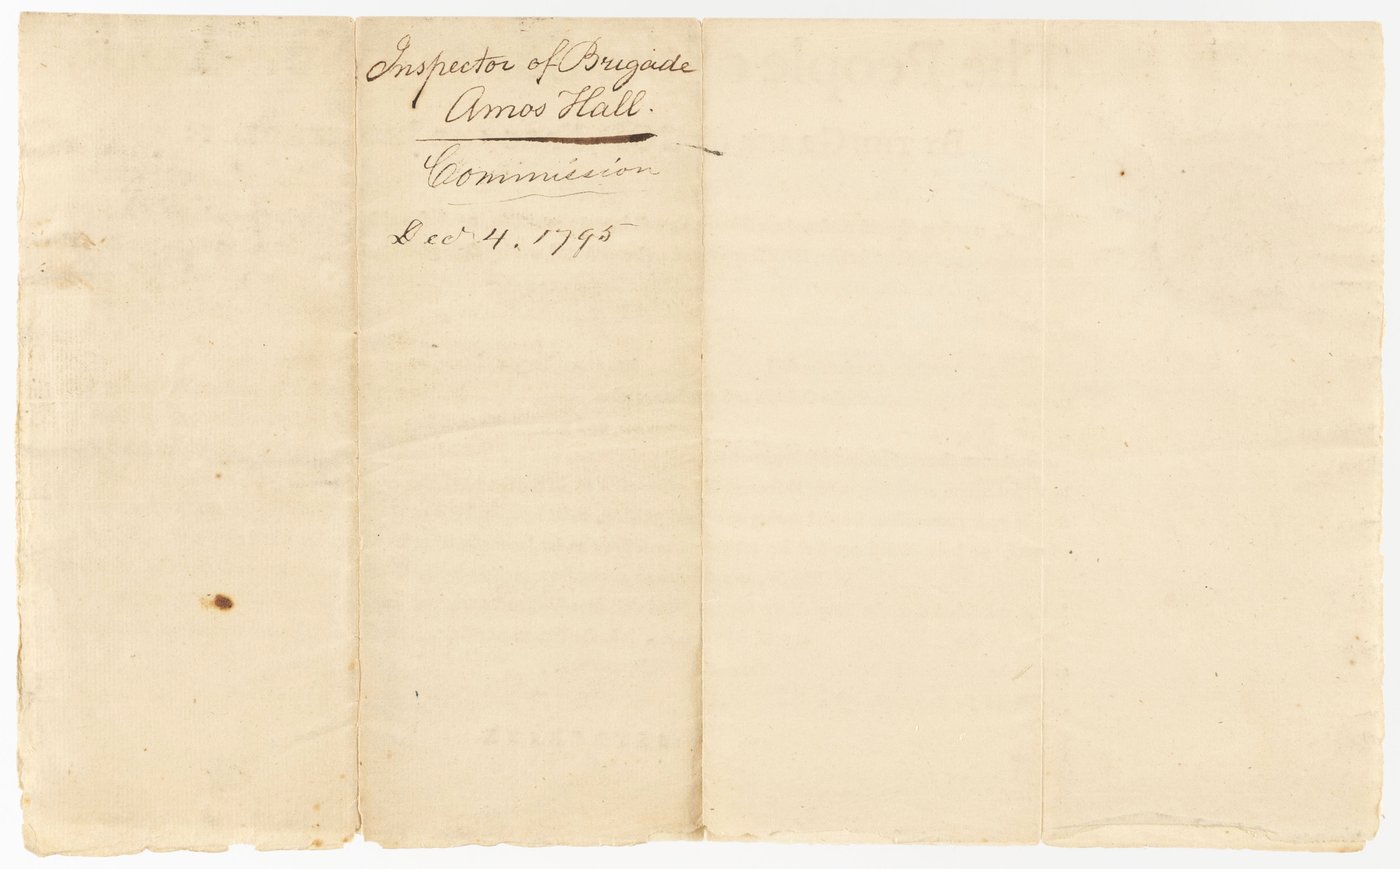 Inspector of Brigade
Amos Hall.
Commission
Dec 4, 1795